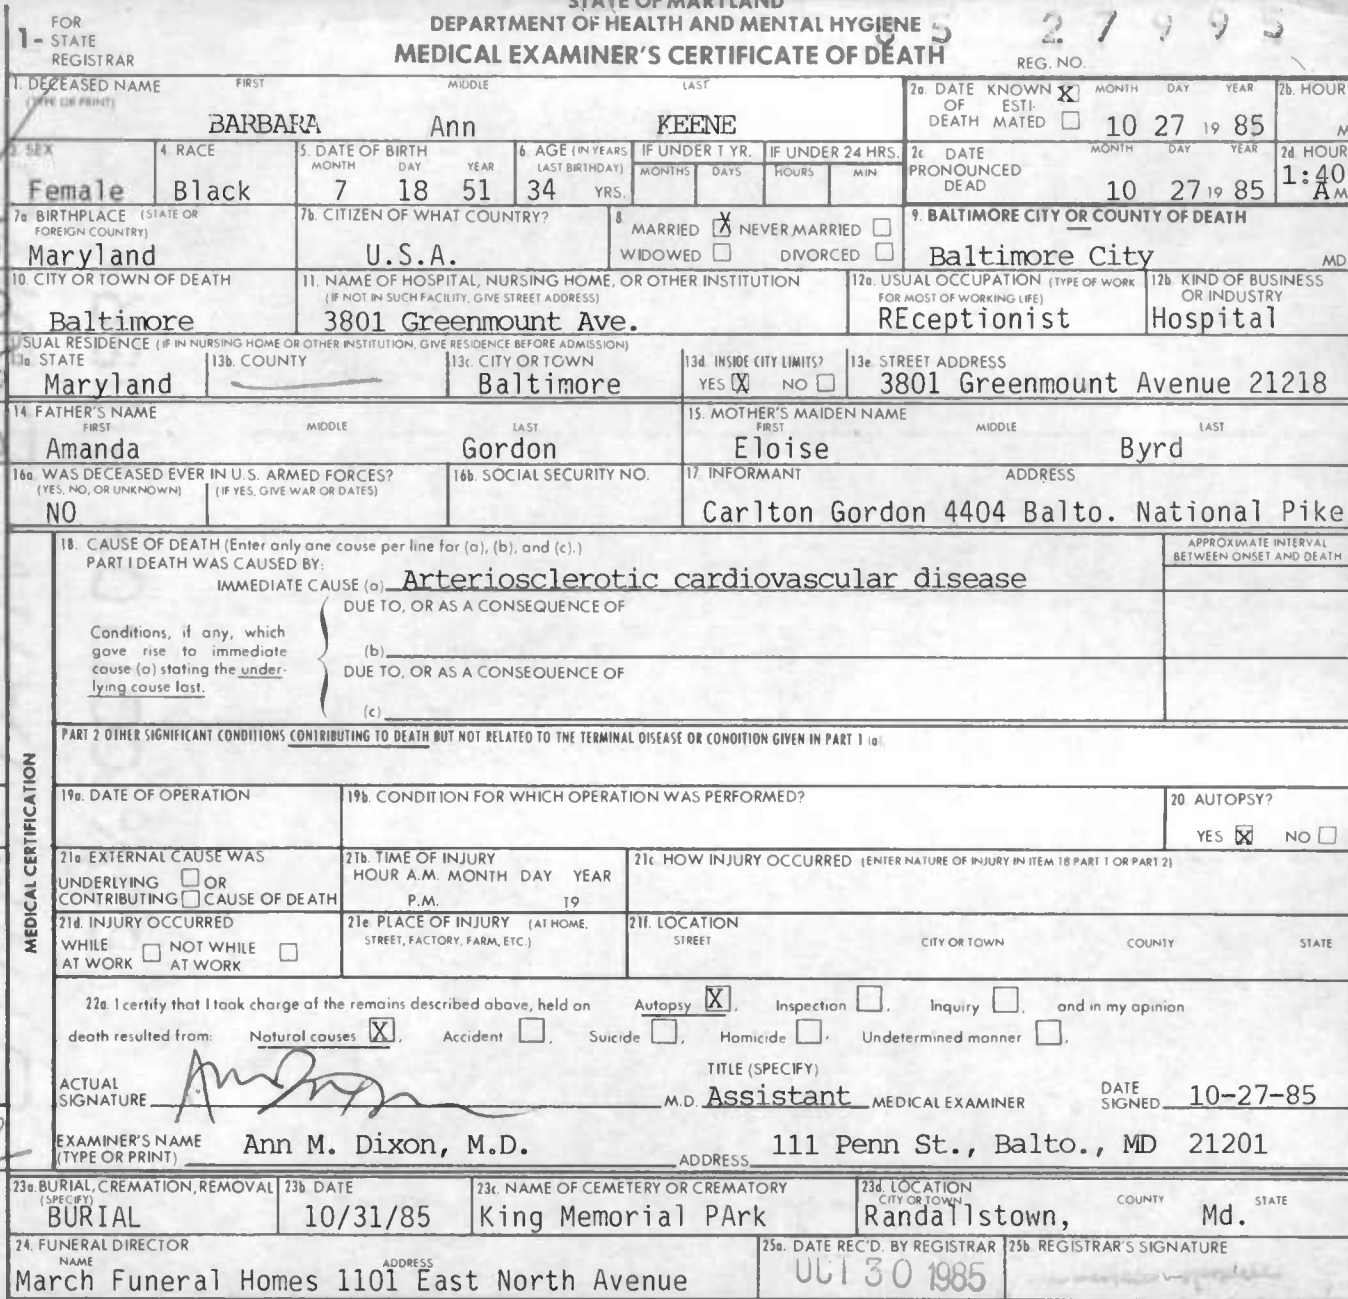 STATE OF MARYLAND
DEPARTMENT OF HEALTH AND MENTAL HYGIENE
MEDICAL EXAMINER'S CERTIFICATE OF DEATH
1- FOR STATE REGISTRAR
85 27995
REG. NO.
1. DECEASED NAME (TYPE OR PRINT) FIRST MIDDLE LAST
BARBARA Ann KEENE
2a. DATE OF DEATH KNOWN X ESTIMATED MONTH DAY YEAR
10 27 19 85
2b. HOUR M
3. SEX
Female
4. RACE
Black
5. DATE OF BIRTH MONTH DAY YEAR
7 18 51
6. AGE (IN YEARS LAST BIRTHDAY)
34 YRS.
IF UNDER 1 YR. MONTHS DAYS
IF UNDER 24 HRS. HOURS MIN
2c. DATE PRONOUNCED DEAD MONTH DAY YEAR
10 27 19 85
2d. HOUR
1:40 A M
7a. BIRTHPLACE (STATE OR FOREIGN COUNTRY)
Maryland
7b. CITIZEN OF WHAT COUNTRY?
U.S.A.
8. MARRIED X NEVER MARRIED
WIDOWED DIVORCED
9. BALTIMORE CITY OR COUNTY OF DEATH
Baltimore City MD
10. CITY OR TOWN OF DEATH
Baltimore
11. NAME OF HOSPITAL, NURSING HOME, OR OTHER INSTITUTION
(IF NOT IN SUCH FACILITY, GIVE STREET ADDRESS)
3801 Greenmount Ave.
12a. USUAL OCCUPATION (TYPE OF WORK FOR MOST OF WORKING LIFE)
REceptionist
12b. KIND OF BUSINESS OR INDUSTRY
Hospital
USUAL RESIDENCE (IF IN NURSING HOME OR OTHER INSTITUTION, GIVE RESIDENCE BEFORE ADMISSION)
13a. STATE
Maryland
13b. COUNTY
13c. CITY OR TOWN
Baltimore
13d. INSIDE CITY LIMITS?
YES X NO
13e. STREET ADDRESS
3801 Greenmount Avenue 21218
14. FATHER'S NAME FIRST MIDDLE LAST
Amanda Gordon
15. MOTHER'S MAIDEN NAME FIRST MIDDLE LAST
Eloise Byrd
16a. WAS DECEASED EVER IN U.S. ARMED FORCES?
(YES, NO, OR UNKNOWN) (IF YES, GIVE WAR OR DATES)
NO
16b. SOCIAL SECURITY NO.
17. INFORMANT ADDRESS
Carlton Gordon 4404 Balto. National Pike
MEDICAL CERTIFICATION
18. CAUSE OF DEATH (Enter only one cause per line for (a), (b), and (c).)
PART I DEATH WAS CAUSED BY:
APPROXIMATE INTERVAL BETWEEN ONSET AND DEATH
IMMEDIATE CAUSE (a) Arteriosclerotic cardiovascular disease
DUE TO, OR AS A CONSEQUENCE OF
Conditions, if any, which gave rise to immediate cause (a) stating the underlying cause last.
(b)
DUE TO, OR AS A CONSEQUENCE OF
(c)
PART 2 OTHER SIGNIFICANT CONDITIONS CONTRIBUTING TO DEATH BUT NOT RELATED TO THE TERMINAL DISEASE OR CONDITION GIVEN IN PART 1 (a)
19a. DATE OF OPERATION
19b. CONDITION FOR WHICH OPERATION WAS PERFORMED?
20. AUTOPSY?
YES X NO
21a. EXTERNAL CAUSE WAS
UNDERLYING OR
CONTRIBUTING CAUSE OF DEATH
21b. TIME OF INJURY
HOUR A.M. MONTH DAY YEAR
P.M. 19
21c. HOW INJURY OCCURRED (ENTER NATURE OF INJURY IN ITEM 18 PART 1 OR PART 2)
21d. INJURY OCCURRED
WHILE AT WORK NOT WHILE AT WORK
21e. PLACE OF INJURY (AT HOME, STREET, FACTORY, FARM, ETC.)
21f. LOCATION
STREET CITY OR TOWN COUNTY STATE
22a. I certify that I took charge of the remains described above, held an Autopsy X, Inspection, Inquiry, and in my opinion
death resulted from: Natural causes X, Accident, Suicide, Homicide, Undetermined manner.
ACTUAL SIGNATURE M.D.
TITLE (SPECIFY)
Assistant MEDICAL EXAMINER
DATE SIGNED 10-27-85
EXAMINER'S NAME (TYPE OR PRINT) Ann M. Dixon, M.D.
ADDRESS 111 Penn St., Balto., MD 21201
23a. BURIAL, CREMATION, REMOVAL (SPECIFY)
BURIAL
23b. DATE
10/31/85
23c. NAME OF CEMETERY OR CREMATORY
King Memorial PArk
23d. LOCATION CITY OR TOWN COUNTY STATE
Randallstown, Md.
24. FUNERAL DIRECTOR
NAME ADDRESS
March Funeral Homes 1101 East North Avenue
25a. DATE REC'D. BY REGISTRAR
OCT 30 1985
25b. REGISTRAR'S SIGNATURE